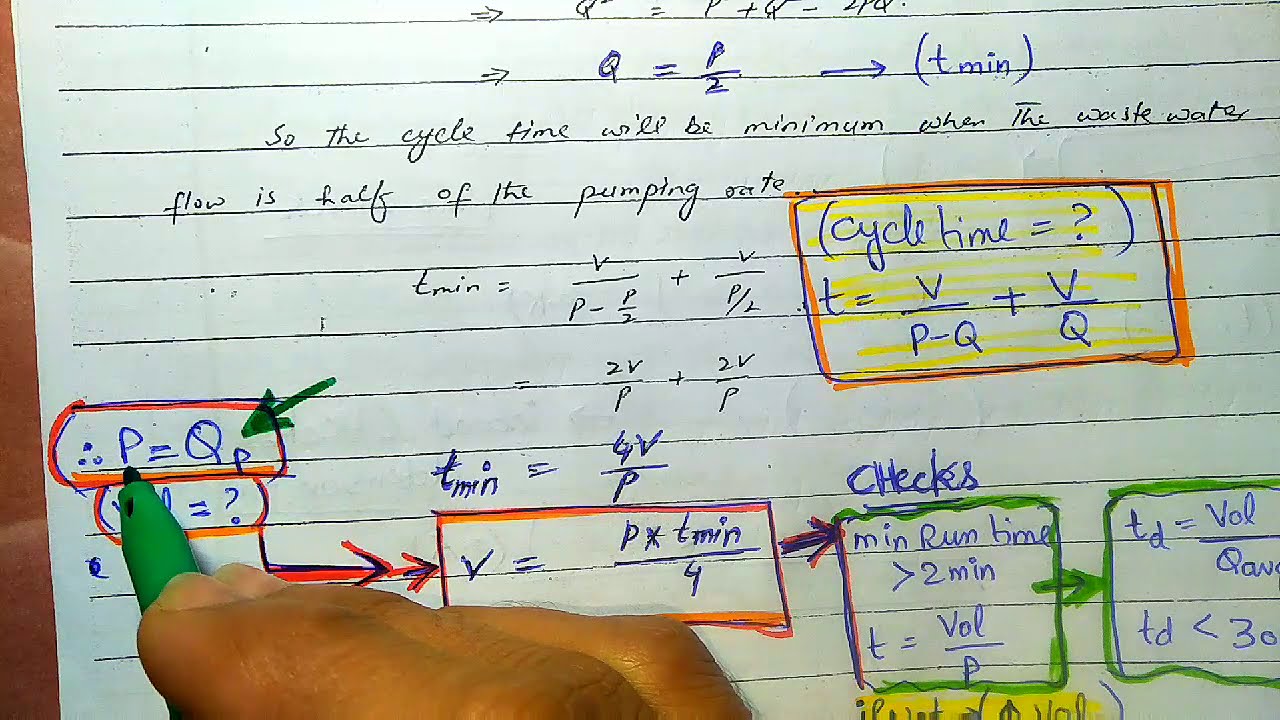 ⇒ Q² = P² + Q² - 2PQ.
⇒ Q = P/2 → (tmin)
So the cycle time will be minimum when The waste water
flow is half of the pumping rate.
(cycle time = ?)
t = V/P-Q + V/Q
tmin = V/P - P/2 + V/P/2
= 2V/P + 2V/P
∴ P = Qp
tmin = 4V/P
= ?)
V = P * tmin/4
CHecks
min Run time
> 2 min
t = Vol/P
td = Vol/Qavg
td < 30